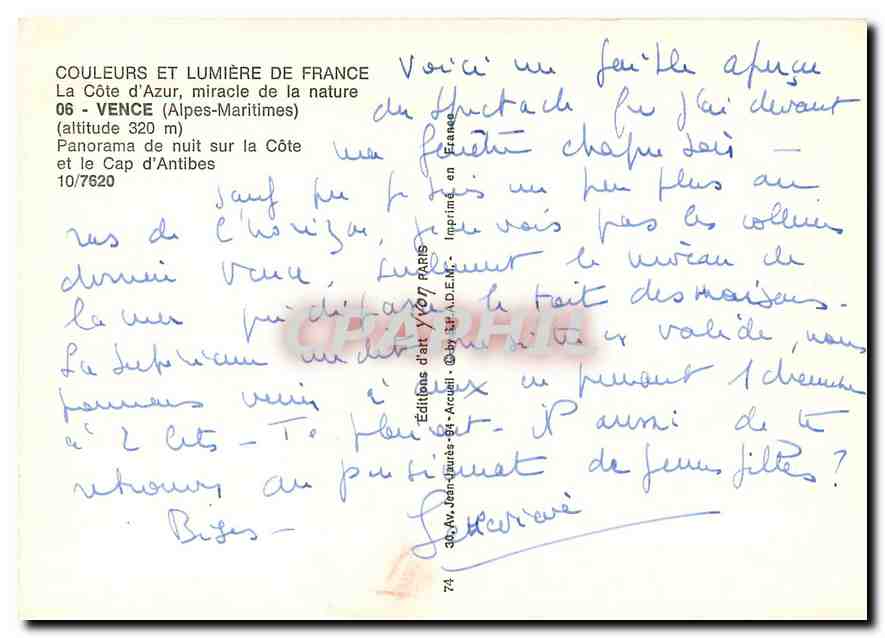 COULEURS ET LUMIÈRE DE FRANCE
La Côte d'Azur, miracle de la nature
06 - VENCE (Alpes-Maritimes)
(altitude 320 m)
Panorama de nuit sur la Côte
et le Cap d'Antibes
10/7620
Voici un faible aperçu
du spectacle que j'ai devant
ma fenêtre chaque soir -
sauf que je suis un peu plus au
ras de l'horizon, je ne vois pas les collines
derrière Vence, seulement le niveau de
la mer qui dépasse le toit des maisons.
La Supérieure me dit si tu es valide, nous
pouvons venir à deux en prenant 1 chambre
à 2 lits - Te plairait-il aussi de te
retrouver au pensionnat de jeunes filles ?
Bises - Geneviève
Éditions d'art Yvon PARIS
30, Av. Jean-Jaurès - 94 - Arcueil - © by S.P.A.D.E.M. - Imprimé en France
74
CPARPHIL